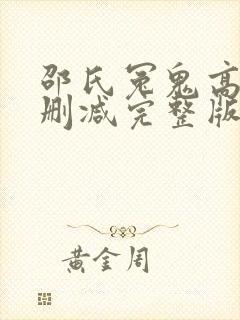 邵氏冤鬼高
删减完整版
黄金周